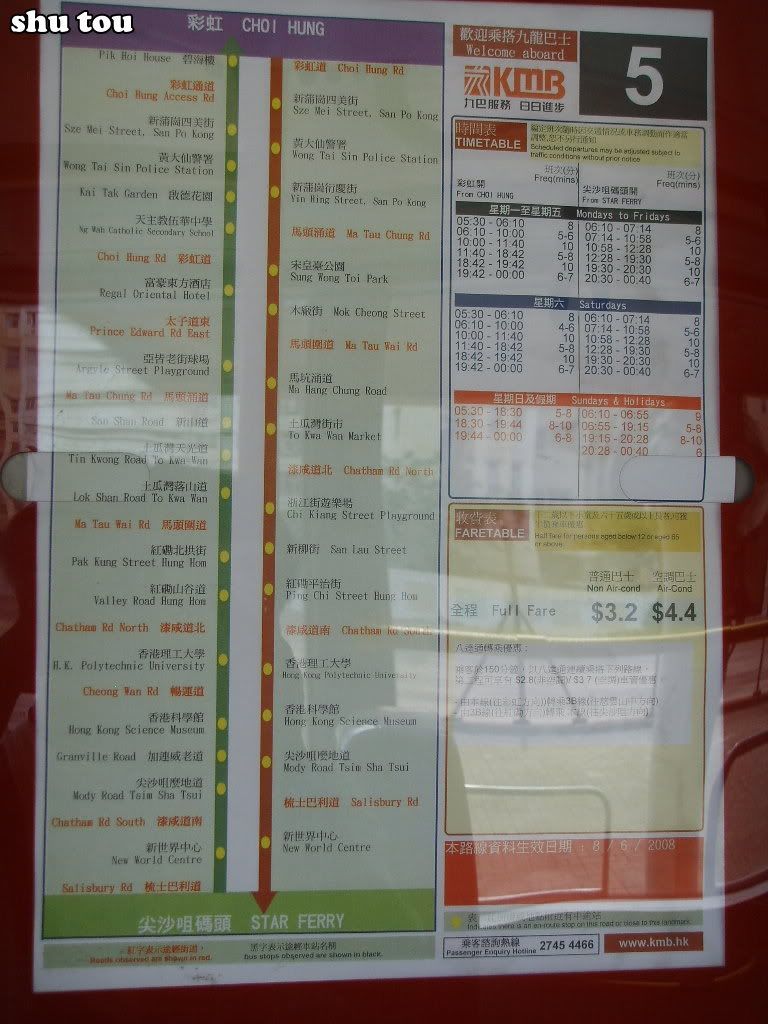 shu tou
彩虹 CHOI HUNG
Pik Hoi House 碧海樓
彩虹通道
Choi Hung Access Rd
新蒲崗四美街
Sze Mei Street, San Po Kong
黃大仙警署
Wong Tai Sin Police Station
Kai Tak Garden 啟德花園
天主教伍華中學
Ng Wah Catholic Secondary School
Choi Hung Rd 彩虹道
富豪東方酒店
Regal Oriental Hotel
太子道東
Prince Edward Rd East
亞皆老街球場
Argyle Street Playground
Ma Tau Chung Rd 馬頭涌道
San Shan Road 新山道
土瓜灣天光道
Tin Kwong Road To Kwa Wan
土瓜灣落山道
Lok Shan Road To Kwa Wan
Ma Tau Wai Rd 馬頭圍道
紅磡北拱街
Pak Kung Street Hung Hom
紅磡山谷道
Valley Road Hung Hom
Chatham Rd North 漆咸道北
香港理工大學
H.K. Polytechnic University
Cheong Wan Rd 暢運道
香港科學館
Hong Kong Science Museum
Granville Road 加連威老道
尖沙咀麼地道
Mody Road Tsim Sha Tsui
Chatham Rd South 漆咸道南
新世界中心
New World Centre
Salisbury Rd 梳士巴利道
彩虹道 Choi Hung Rd
新蒲崗四美街
Sze Mei Street, San Po Kong
黃大仙警署
Wong Tai Sin Police Station
新蒲崗衍慶街
Yin Hing Street, San Po Kong
馬頭涌道 Ma Tau Chung Rd
宋皇臺公園
Sung Wong Toi Park
木廠街 Mok Cheong Street
馬頭圍道 Ma Tau Wai Rd
馬坑涌道
Ma Hang Chung Road
土瓜灣街市
To Kwa Wan Market
漆咸道北 Chatham Rd North
浙江街遊樂場
Chi Kiang Street Playground
新柳街 San Lau Street
紅磡平治街
Ping Chi Street Hung Hom
漆咸道南 Chatham Rd South
香港理工大學
Hong Kong Polytechnic University
香港科學館
Hong Kong Science Museum
尖沙咀麼地道
Mody Road Tsim Sha Tsui
梳士巴利道 Salisbury Rd
新世界中心
New World Centre
尖沙咀碼頭 STAR FERRY
紅字表示途經街道，
Roads observed are shown in red.
黑字表示途經車站名稱
bus stops observed are shown in black.
歡迎乘搭九龍巴士
Welcome aboard
KMB
九巴服務 日日進步
5
時間表
TIMETABLE
編定班次隨時因交通情況或車務調動而作適當
調整,恕不另行通知
Scheduled departures may be adjusted subject to
traffic conditions without prior notice
彩虹開 班次(分) 尖沙咀碼頭開 班次(分)
From CHOI HUNG Freq(mins) From STAR FERRY Freq(mins)
星期一至星期五 Mondays to Fridays
05:30 - 06:10 8 06:10 - 07:14 8
06:10 - 10:00 5-6 07:14 - 10:58 5-6
10:00 - 11:40 10 10:58 - 12:28 10
11:40 - 18:42 5-8 12:28 - 19:30 5-8
18:42 - 19:42 10 19:30 - 20:30 10
19:42 - 00:00 6-7 20:30 - 00:40 6-7
星期六 Saturdays
05:30 - 06:10 8 06:10 - 07:14 8
06:10 - 10:00 4-6 07:14 - 10:58 5-6
10:00 - 11:40 10 10:58 - 12:28 10
11:40 - 18:42 5-8 12:28 - 19:30 5-8
18:42 - 19:42 10 19:30 - 20:30 10
19:42 - 00:00 6-7 20:30 - 00:40 6-7
星期日及假期 Sundays & Holidays
05:30 - 18:30 5-8 06:10 - 06:55 9
18:30 - 19:44 8-10 06:55 - 19:15 5-8
19:44 - 00:00 6-8 19:15 - 20:28 8-10
20:28 - 00:40 6
收費表
FARETABLE
十二歲以下小童及六十五歲或以上長者可獲
半價乘車優惠
Half fare for persons aged below 12 or aged 65
or above.
普通巴士 空調巴士
Non Air-cond Air-Cond
全程 Full Fare $3.2 $4.4
八達通轉乘優惠：
乘客於150分鐘內,以八達通連續乘搭下列路線,
第二程可享有 $2.8(非空調)/ $3.7 (空調)車資優惠
本路線資料生效日期 : 8 / 6 / 2008
Indicates there is an en-route stop on this road or close to this landmark.
乘客諮詢熱線
Passenger Enquiry Hotline 2745 4466
www.kmb.hk